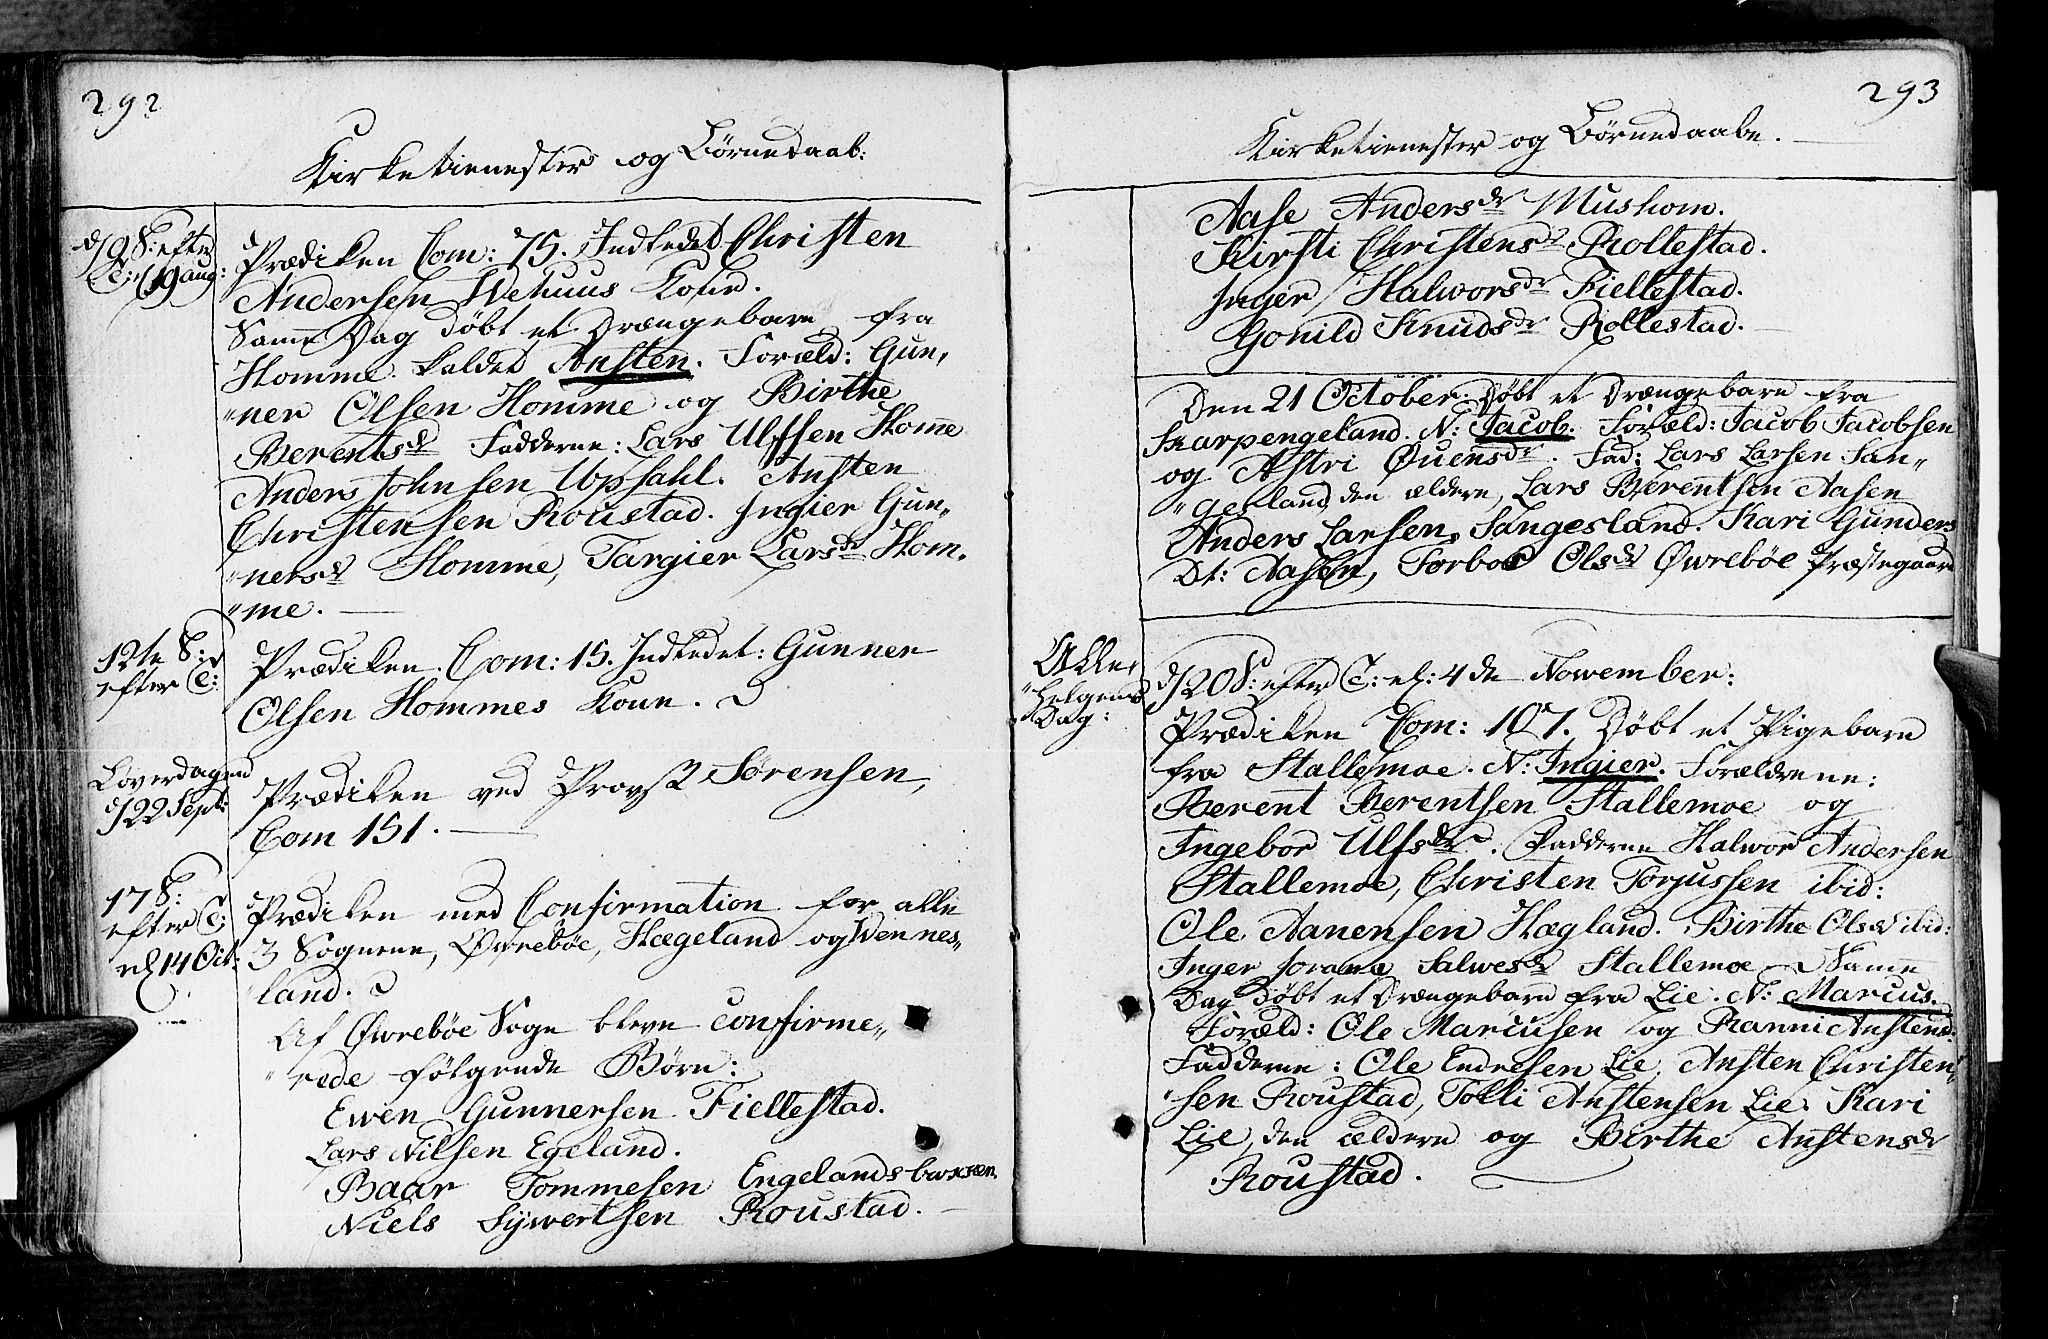 292
Kirketienester og Børnedaab:
d/9 S: efter
T: / 19 aug:
Prædiken Com: 75. Indledet Christen
Andersen Wehuus Kone.
Samme Dag døbt et Drængebarn fra
Homme kaldet Ansten. Foræld: Gun„
„ner Olsen Homme og Birthe
Berentsdr Fadderne: Lars Ulfsen Home
Anders Johnsen Upsahl. Ansten
Christensen Roustad. Ingier Gun„
„nersdr Homme, Targier Larsdr Hom„
„me.
12te S:
efter T:
Prædiken. Com: 15. Indledet: Gunner
Olsen Hommes Kone.
Løverdagen
d/22 Sept:
Prædiken ved Provst Sørensen,
Com 151.
17 S:
efter T:
el 14 Oct:
Prædiken med Confirmation for alle
3 Sognene, Øwrebøe, Hægeland og Wennes„
„land.
Af Øwrebøe Sogn bleve confirme„
„rede følgende Børn:
Ewen Gunnersen Fiellestad.
Lars Nilsen Egeland.
Baar Tommesen Engelands
Niels Sywertsen Roustad.
293
Kirketienester og Børnedaabe.
Aase Andersdr Mushom.
Kirsti Christensdr Rollestad.
Inger Halworsdr Fiellestad.
Gonild Knudsdr Rollestad.
Den 21 October. Døbt et Drængebarn fra
Skarpengeland. N: Jacob. Foræld: Jacob Jacobsen
og Astri Øuensdr. Fad: Lars Larsen San„
„gesland den ældere, Lars Berentsen Aasen
Anders Larsen Sangesland. Kari Gunders
Dt: Aasen, Torbor Olsdr Øwrebøe Præstegaard
Alle„
„Helgens
Dag:
d/20 S: efter T: el: 4 de Nowember:
Prædiken Com: 107. Døbt et Pigebarn
fra Stallemoe. N: Ingier. Forældrene:
Berent Berentsen Stallemoe og
Ingebor Ulfsdr. Fadderne Halwor Andersen
Stallemoe, Christen Torjussen ibid:
Ole Aanensen Hægland. Birthe Olsdr ibid:
Inger Jorane Salwesdr Stallemoe Samme
Dag døbt et Drængebarn fra Lie. N: Marcus.
Foræld: Ole Marcusen og Ranni Anstensd.
Fadderne: Ole Endresen Lie, Ansten Christen„
„sen Roustad, Tolli Anstensen Lie. Kari
Lie, den ældere og Birthe Anstensdr
Roustad.